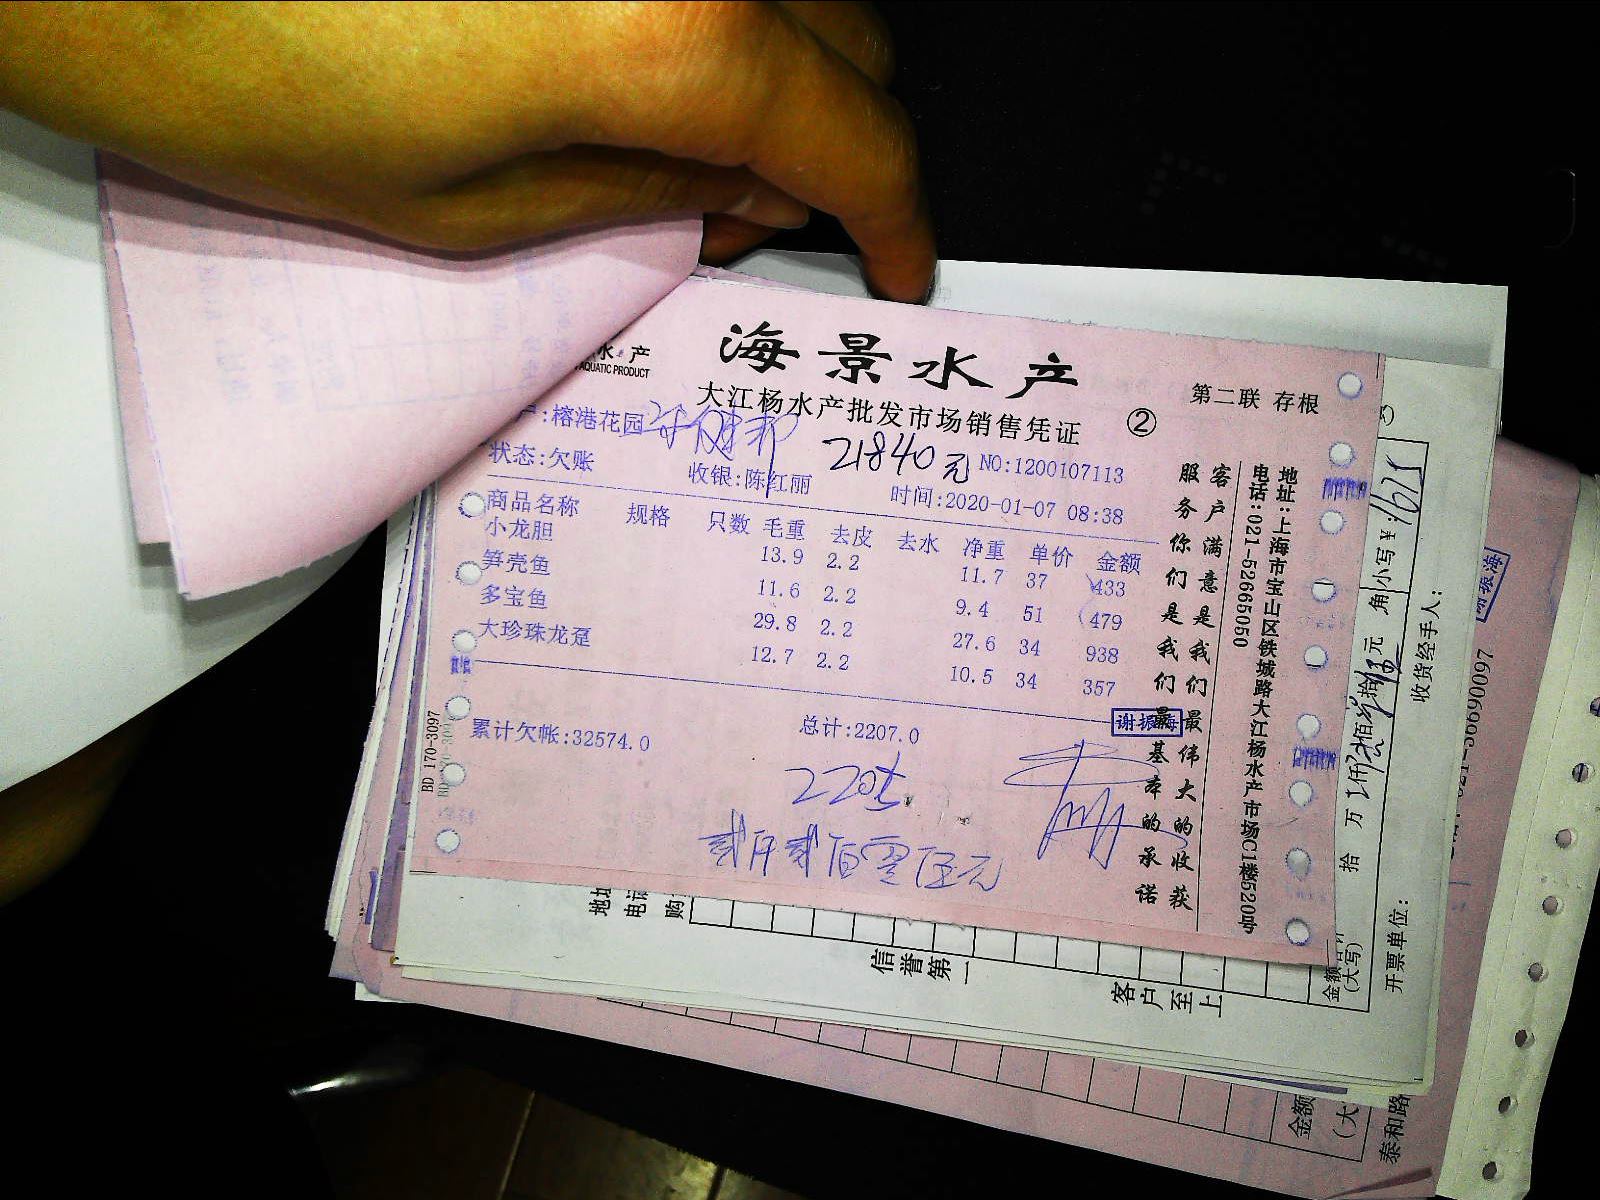 水产
AQUATIC PRODUCT
海景水产
大江杨水产批发市场销售凭证
②
第二联 存根
:榕港花园
21840元
NO:1200107113
状态:欠账
收银:陈红丽
时间:2020-01-07 08:38
商品名称 规格 只数 毛重 去皮 去水 净重 单价 金额
小龙胆 13.9 2.2 11.7 37 433
笋壳鱼 11.6 2.2 9.4 51 479
多宝鱼 29.8 2.2 27.6 34 938
大珍珠龙趸 12.7 2.2 10.5 34 357
累计欠帐:32574.0
总计:2207.0
谢振海
2205
贰仟贰佰零伍元
客户满意是我们最伟大的收获
服务你们是我们最基本的承诺
地址:上海市宝山区铁城路大江杨水产市场C1楼520号
电话:021-52665050
BD 170-3097
地址
电话
购
信誉第一
客户至上
金额合计
(大写)
拾 万 仟 佰 拾 元 角
小写¥:1675
开票单位:
收货经手人:
谢振海
021-56690097
金额
(大
泰和路